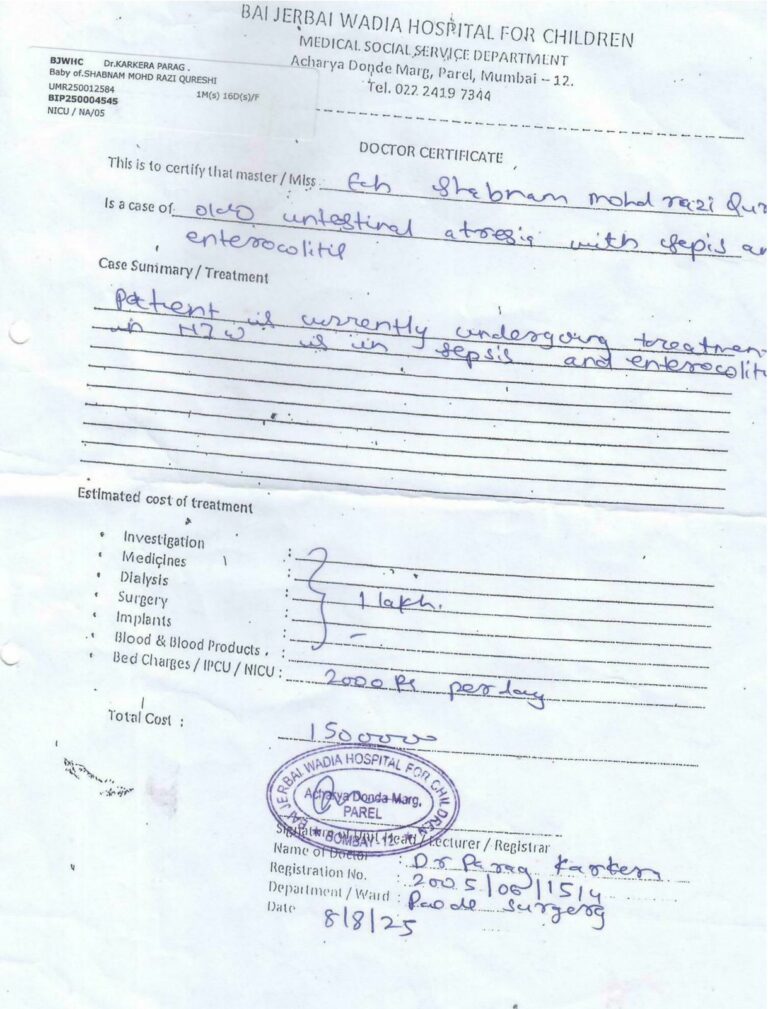 BAI JERBAI WADIA HOSPITAL FOR CHILDREN
MEDICAL SOCIAL SERVICE DEPARTMENT
Acharya Donde Marg, Parel, Mumbai – 12.
Tel. 022 2419 7344
BJWHC Dr.KARKERA PARAG .
Baby of.SHABNAM MOHD RAZI QURESHI
UMR250012584 1M(s) 16D(s)/F
BIP250004545
NICU / NA/05
DOCTOR CERTIFICATE
This is to certify that master / Miss Shabnam mohd razi Qur
Is a case of intestinal atresia with sepis an
enterocolitis
Case Summary / Treatment
Patient is currently undergoing treatmen
in is in sepsis and enterocolit
Estimated cost of treatment
• Investigation :
• Medicines :
• Dialysis :
• Surgery : 1 lakh.
• Implants : –
• Blood & Blood Products . :
• Bed Charges / IPCU / NICU : 2000 Rs per day
Total Cost : 1500000
BAI JERBAI WADIA HOSPITAL FOR CHILDREN
Acharya Donda Marg,
PAREL
★ BOMBAY-12 ★
Signature of Unit Head / Lecturer / Registrar
Name of Doctor : Dr Parag Karkera
Registration No. : 2005/06/1514
Department / Ward : Surgery
Date 8/8/25